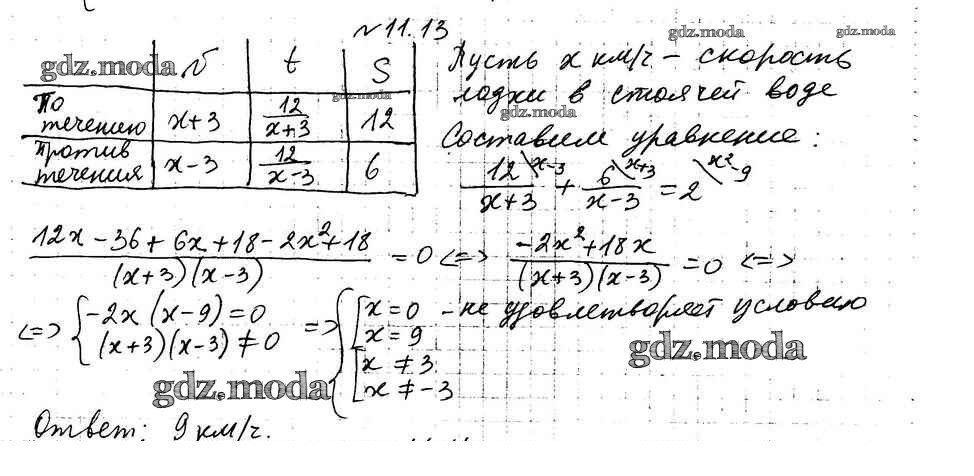 № 11.13
gdz.moda
gdz.moda v t S
gdz.moda
По течению x+3 12/(x+3) 12
Против течения x-3 12/(x-3) 6
Пусть x км/ч – скорость
gdz.moda
лодки в стоячей воде
gdz.moda
Составим уравнение:
12/(x+3) \x-3 + 6/(x-3) \x+3 = 2 \x²-9
(12x - 36 + 6x + 18 - 2x² + 18)/((x+3)(x-3)) = 0 <=> (-2x² + 18x)/((x+3)(x-3)) = 0 <=>
<=> { -2x(x-9) = 0
(x+3)(x-3) ≠ 0
=> { [ x = 0 - не удовлетворяет условию
x = 9
x ≠ 3
x ≠ -3
gdz.moda
gdz.moda
Ответ: 9 км/ч.